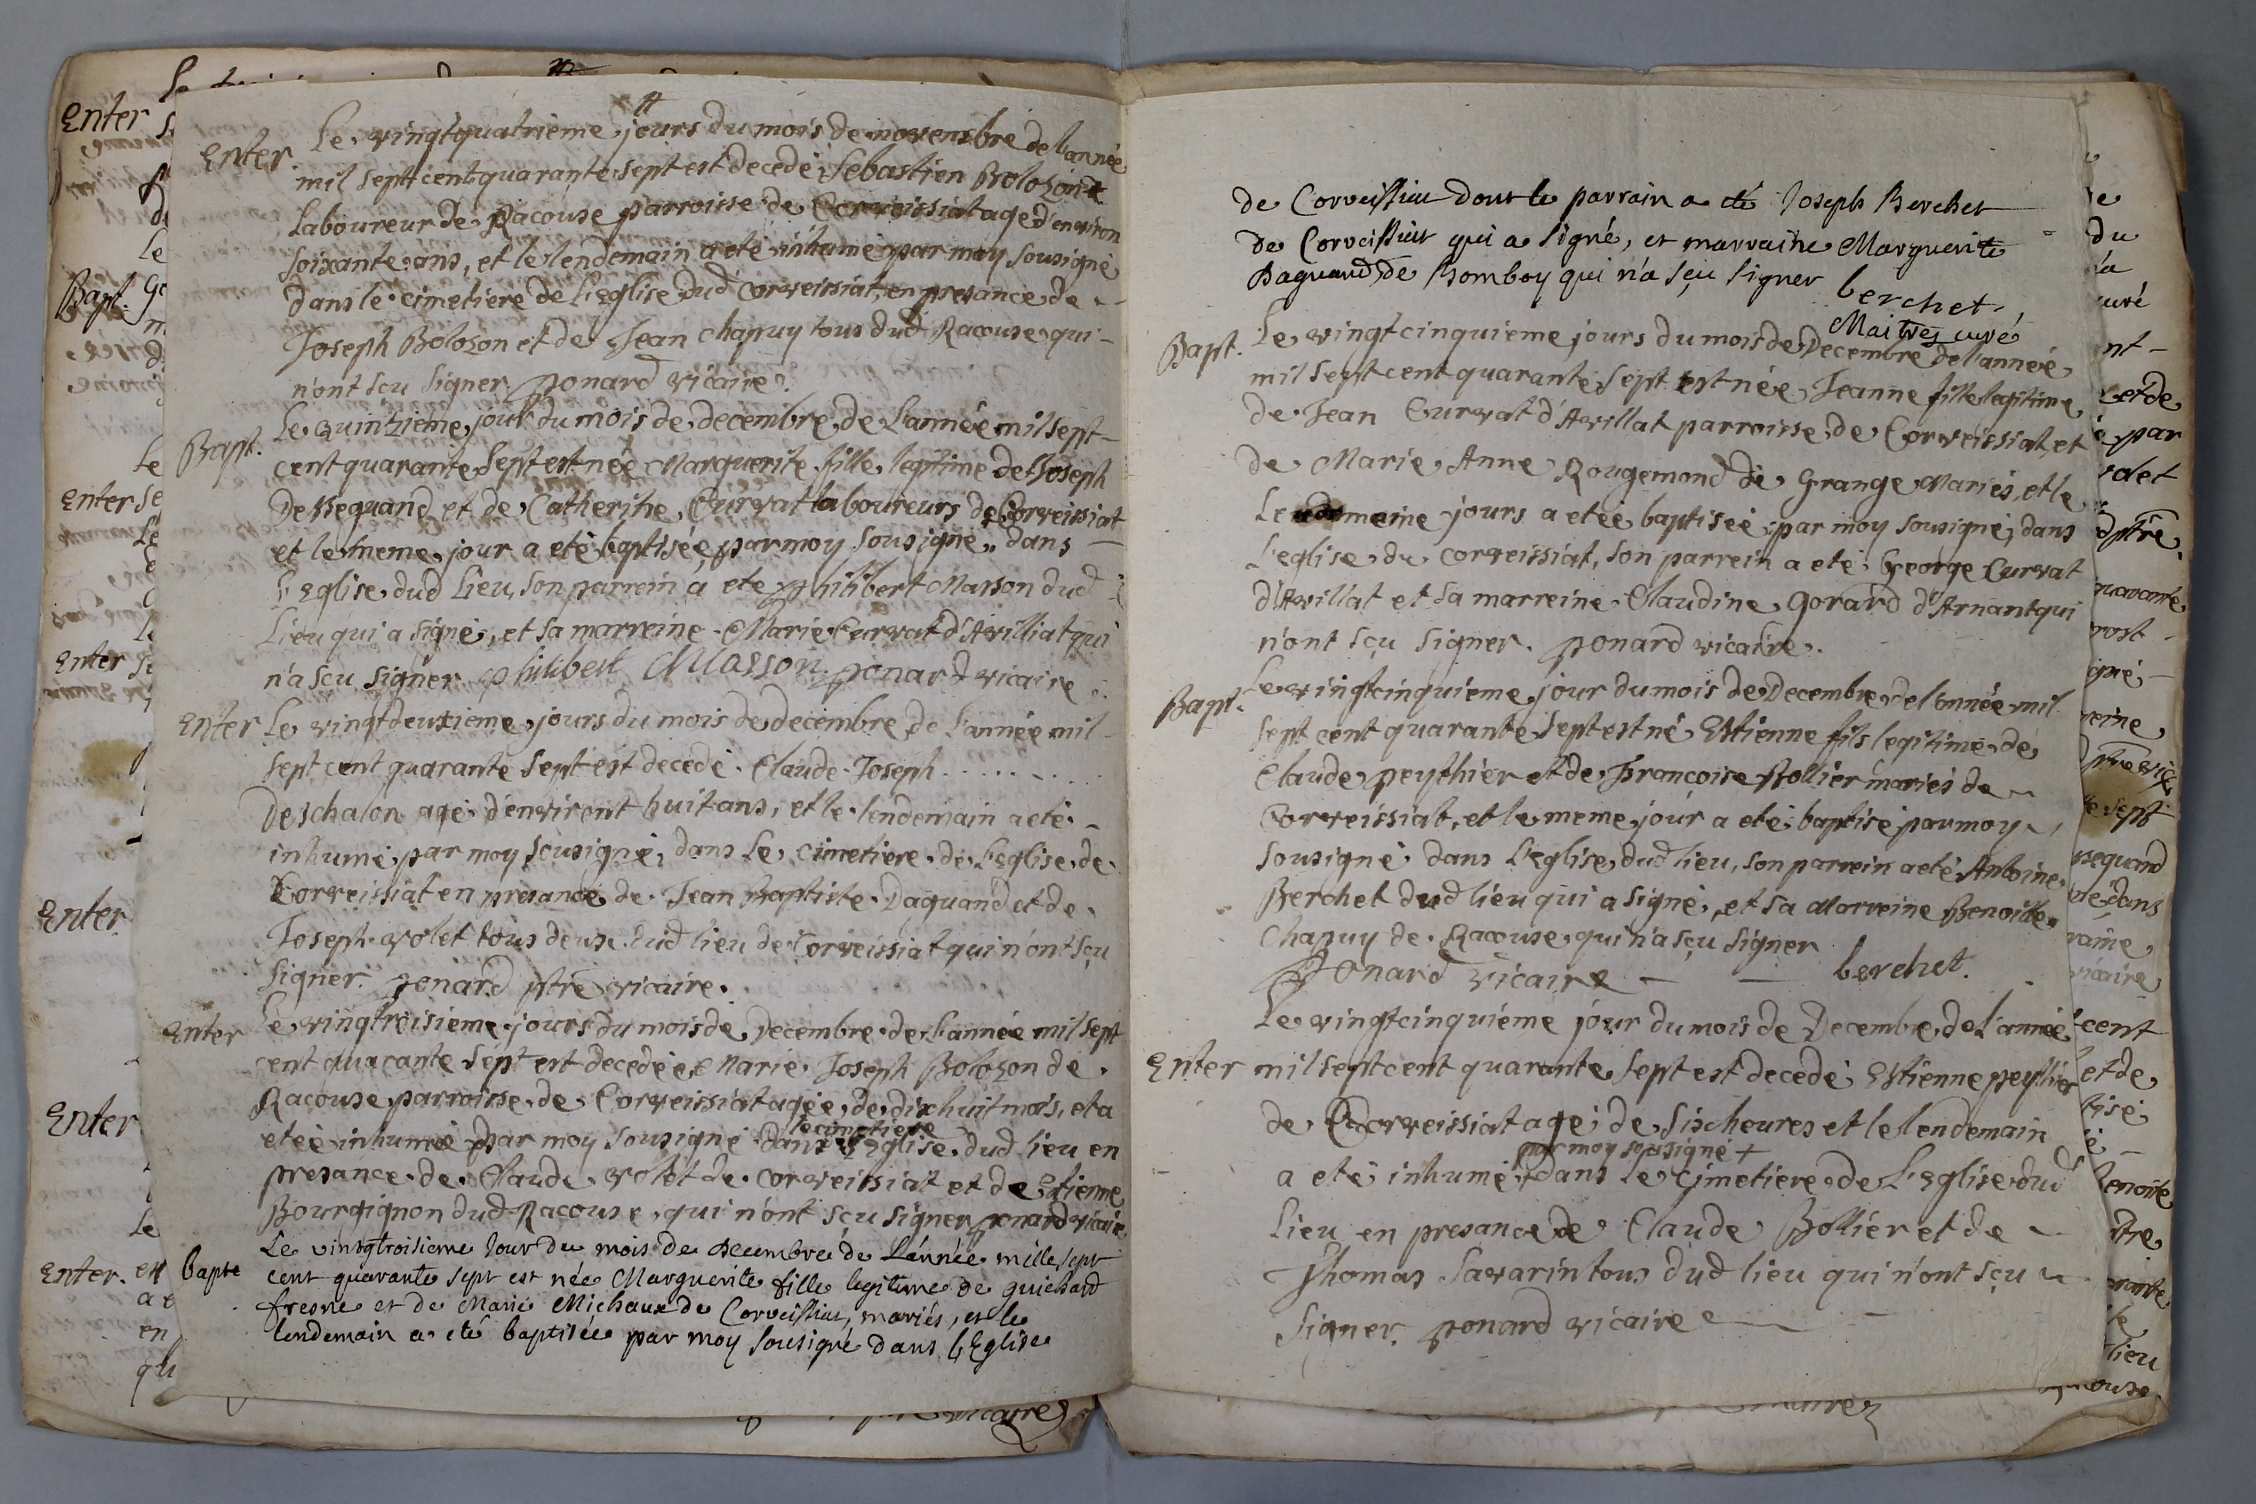 Enter Le vingtquatrieme jours du mois de novembre de l'année
mil sept cent quarante sept est decedé Sebastien Bolozon
Laboureur de Racouse parroisse de Corveissiat agé d'environ
soixante ans, et le lendemain a eté inhumé par moy sousigné
dans le cimetiere de L'eglise dud Corveissiat, en presance de
Joseph Bolozon et de Jean Chapuy tous dud Racouse qui
n'ont sçu signer ponard vicaire.
Bapt. Le quinzieme jour du mois de decembre de L'année mil sept
cent quarante sept est née Marguerite fille legitime de Joseph
De Bequand et de Catherine Curvat laboureurs de Corveissiat
et le meme jour a eté baptisée par moy sousigné dans
L'Eglise dud Lieu, son parrein a ete philibert Masson dud
Lieu qui a signé, et sa marreine Marie Curvat d'Avilliat qui
n'a sçu signer philibert Masson ponard vicaire
Enter Le vingtdeuxieme jours du mois de decembre de L'année mil
sept cent quarante sept est decedé Claude Joseph . . . . . . .
Deschalon agé d'environt huit ans, et le lendemain a eté
inhumé par moy sousigné, dans Le cimetiere de L'eglise de
Corveissiat en presance de Jean Baptiste Daguand et de
Joseph volet tous deux dud lieu de Corveissiat qui n'ont sçu
signer. ponard ptre vicaire.
Enter Le vingtreisieme jours du mois de Decembre de L'année mil sept
cent quarante sept est decedée Marie Joseph Bolozon de
Racouse parroisse de Corveissiat agée de dixhuit mois, et a
le cimetiere
eteé inhumeé par moy sousigné dans L'Eglise dud lieu en
presance de Claude volet de Corveissiat et de Etienne
Bourgignon dud Racouse, qui n'ont sçu signer ponard vicaire
bapte Le vingtroisieme Jour du mois de decembre de L'année mille sept
cent quarante sept est née Marguerite fille legitime de guichard
fresne et de Marie Michaux de Corveissiat, mariés, et le
lendemain a eté baptisée par moy sousigné dans L'Eglise
de Corveissiat dont le parrain a eté Joseph Berchet
de Corveissiat qui a signé, et marraine Marguerite
Daguand de Thomboy qui n'a sçu signer berchet
Maitrez curé
Bapt. Le vingtcinquieme jours du mois de Decembre de l'anneé
mil sept cent quarante sept est née Jeanne fille legitime
de Jean Curvat d'Avillat parroisse de Corveissiat, et
de Marie Anne Rougemond de Grange mariés, et le
Lendemeine jours a etée baptiseé par moy sousigné, dans
L'eglise de Corveissiat, son parrein a eté George Curvat
d'Avillat et sa marreine Claudine Gorard d'Arnant qui
n'ont sçu signer. ponard vicaire.
Bapt. Le vingtcinquieme jour du mois de Decembre de l'année mil
sept cent quarante sept est né Estienne fils legitime de
Claude peythier et de Françoise Rollier mariés de
Corveissiat, et le meme jour a eté baptisé par moy
sousigné dans L'eglise dud lieu, son parrein a eté Antoine
Berchet dud lieu qui a signé, et sa Marreine Benoitte
Chapuy de Racouse qui n'a sçu signer
Ponard vicaire berchet.
Le vingtcinquiéme jour du mois de Decembre de L'année
Enter mil sept cent quarante sept est decedé Estienne peythier
de Corveissiat agé de six heures et le lendemain
par moy sousigné +
a eté inhumé + dans Le cimetiere de L'Eglise dud
Lieu en presance de Claude Bollier et de
Thomas Savarin tous dud lieu qui n'ont sçu
signer. ponard vicaire